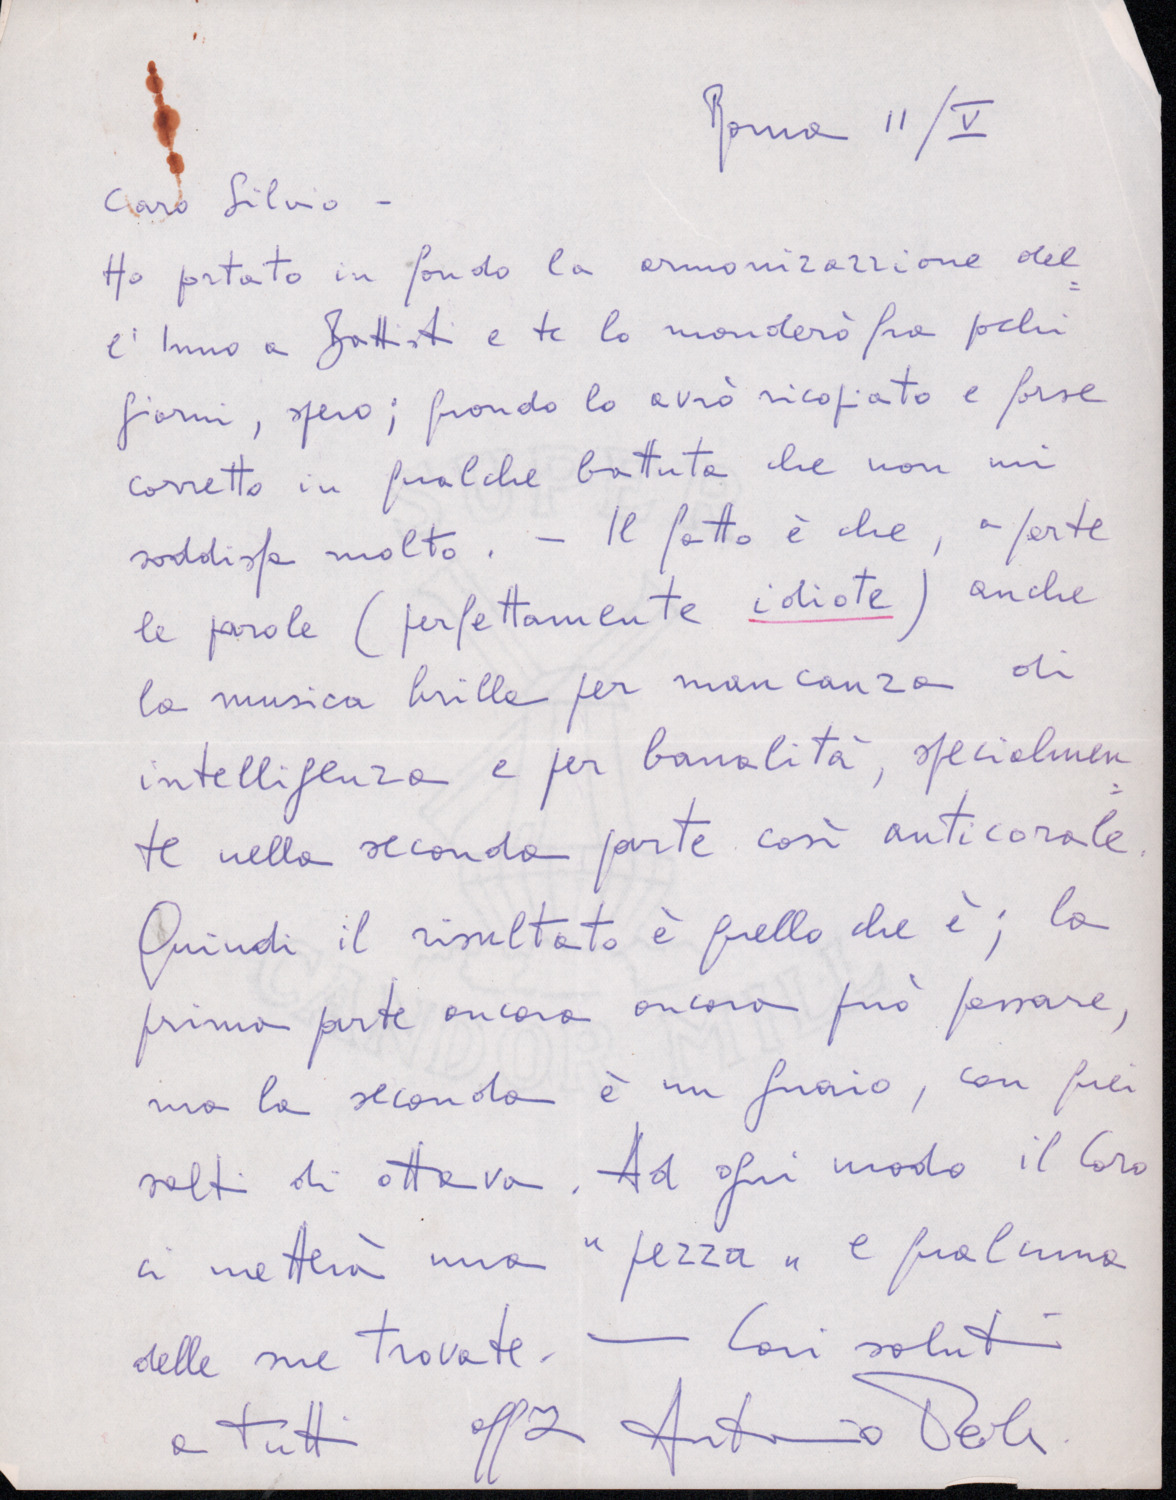 Roma 11/V
Caro Silvio -
Ho portato in fondo la armonizazzione del=
l'Inno a Battisti e te lo manderò fra pochi
giorni, spero; quando lo avrò ricopiato e forse
corretto in qualche battuta che non mi
soddisfa molto. - Il fatto è che, a parte
le parole (perfettamente idiote) anche
la musica brilla per mancanza di
intelligenza e per banalità, specialmen=
te nella seconda parte così anticorale.
Quindi il risultato è quello che è; la
prima parte ancora ancora può passare,
ma la seconda è un guaio, con quei
salti di ottava. Ad ogni modo il Coro
ci metterà una "pezza" e qualcuna
delle sue trovate. — Cari saluti
a tutti aff Antonio
SUPER
CANDOR MILL